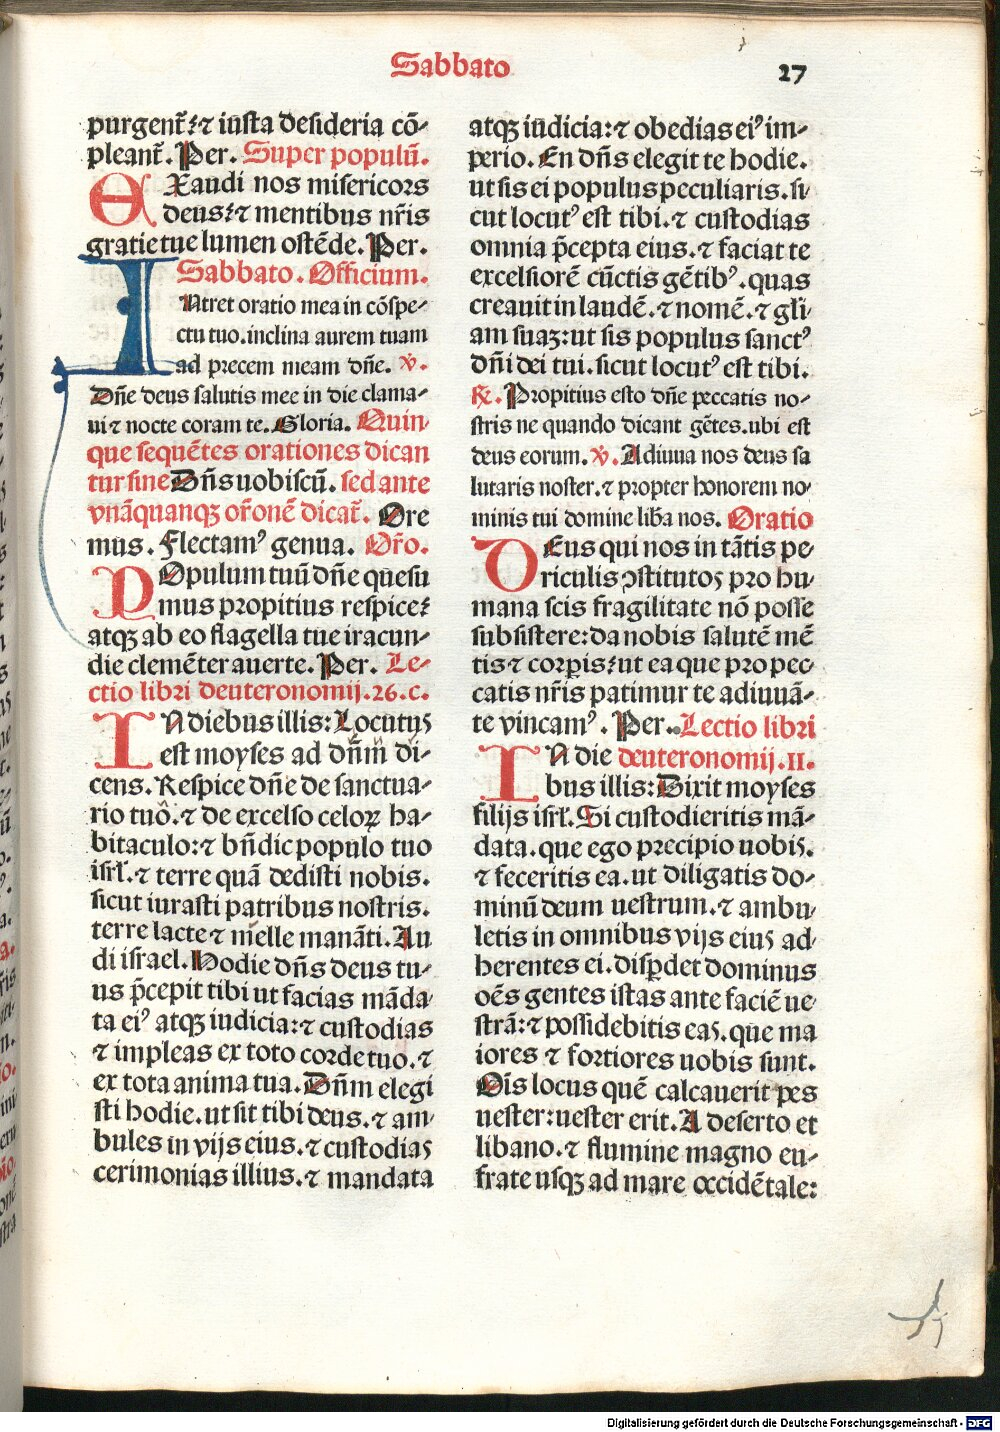 Sabbato
27
purgent᷑:⁊ iusta desideria cō-
pleant᷑. Per. Super populū.
EXaudi nos misericors
deus:⁊ mentibus nr̄is
gratie tue lumen ostēde. Per.
Sabbato. Officium.
INtret oratio mea in cōspe-
ctu tuo. inclina aurem tuam
ad precem meam dn̄e. v̄.
Dn̄e deus salutis mee in die clama-
ui ⁊ nocte coram te. Gloria. Quin-
que sequētes orationes dican
tur sine Dn̄s uobiscū. sed ante
vnāquanqꝫ or̄onē dicat᷑. Ore
mus. Flectamꝰ genua. Or̄o.
POpulum tuū dn̄e quesu
mus propitius respice:
atqꝫ ab eo flagella tue iracun-
die clemēter auerte. Per. Le-
ctio libri deuteronomij. 26. c.
IN diebus illis: Locutus
est moyses ad dn̄m di-
cens. Respice dn̄e de sanctua-
rio tuo. ⁊ de excelso celoꝝ ha-
bitaculo: ⁊ bn̄dic populo tuo
isrl̄. ⁊ terre quā dedisti nobis.
sicut iurasti patribus nostris.
terre lacte ⁊ melle manāti. Au
di israel. Hodie dn̄s deus tu-
us p̄cepit tibi ut facias māda-
ta eiꝰ atqꝫ iudicia: ⁊ custodias
⁊ impleas ex toto corde tuo. ⁊
ex tota anima tua. Dn̄m elegi
sti hodie. ut sit tibi deus. ⁊ am-
bules in vijs eius. ⁊ custodias
cerimonias illius. ⁊ mandata
atqꝫ iudicia: ⁊ obedias eiꝰ im-
perio. En dn̄s elegit te hodie.
ut sis ei populus peculiaris. si-
cut locutꝰ est tibi. ⁊ custodias
omnia p̄cepta eius. ⁊ faciat te
excelsiorē cūctis gētibꝰ. quas
creauit in laudē. ⁊ nomē. ⁊ gl̄i-
am suaꝫ: ut sis populus sanctꝰ
dn̄i dei tui. sicut locutꝰ est tibi.
℞. Propitius esto dn̄e peccatis no-
stris ne quando dicant gētes. ubi est
deus eorum. v̄. Adiuua nos deus sa
lutaris noster. ⁊ propter honorem no-
minis tui domine lib̄a nos. Oratio
DEus qui nos in tātis pe-
riculis ꝯstitutos pro hu-
mana scis fragilitate nō posse
subsistere: da nobis salutē mē
tis ⁊ corꝑis: ut ea que pro pec
catis nr̄is patimur te adiuuā-
te vincamꝰ. Per. Lectio libri
IN die deuteronomij. II.
bus illis: Dixit moyses
filijs isrl̄. Si custodieritis mā-
data. que ego precipio uobis.
⁊ feceritis ea. ut diligatis do-
minū deum uestrum. ⁊ ambu-
letis in omnibus vijs eius ad-
herentes ei. disꝑdet dominus
oēs gentes istas ante faciē ue-
strā: ⁊ possidebitis eas. que ma
iores ⁊ fortiores uobis sunt.
Oīs locus quē calcauerit pes
uester: uester erit. A deserto et
libano. ⁊ flumine magno eu-
frate usqꝫ ad mare occidētale:
Digitalisierung gefördert durch die Deutsche Forschungsgemeinschaft - DFG